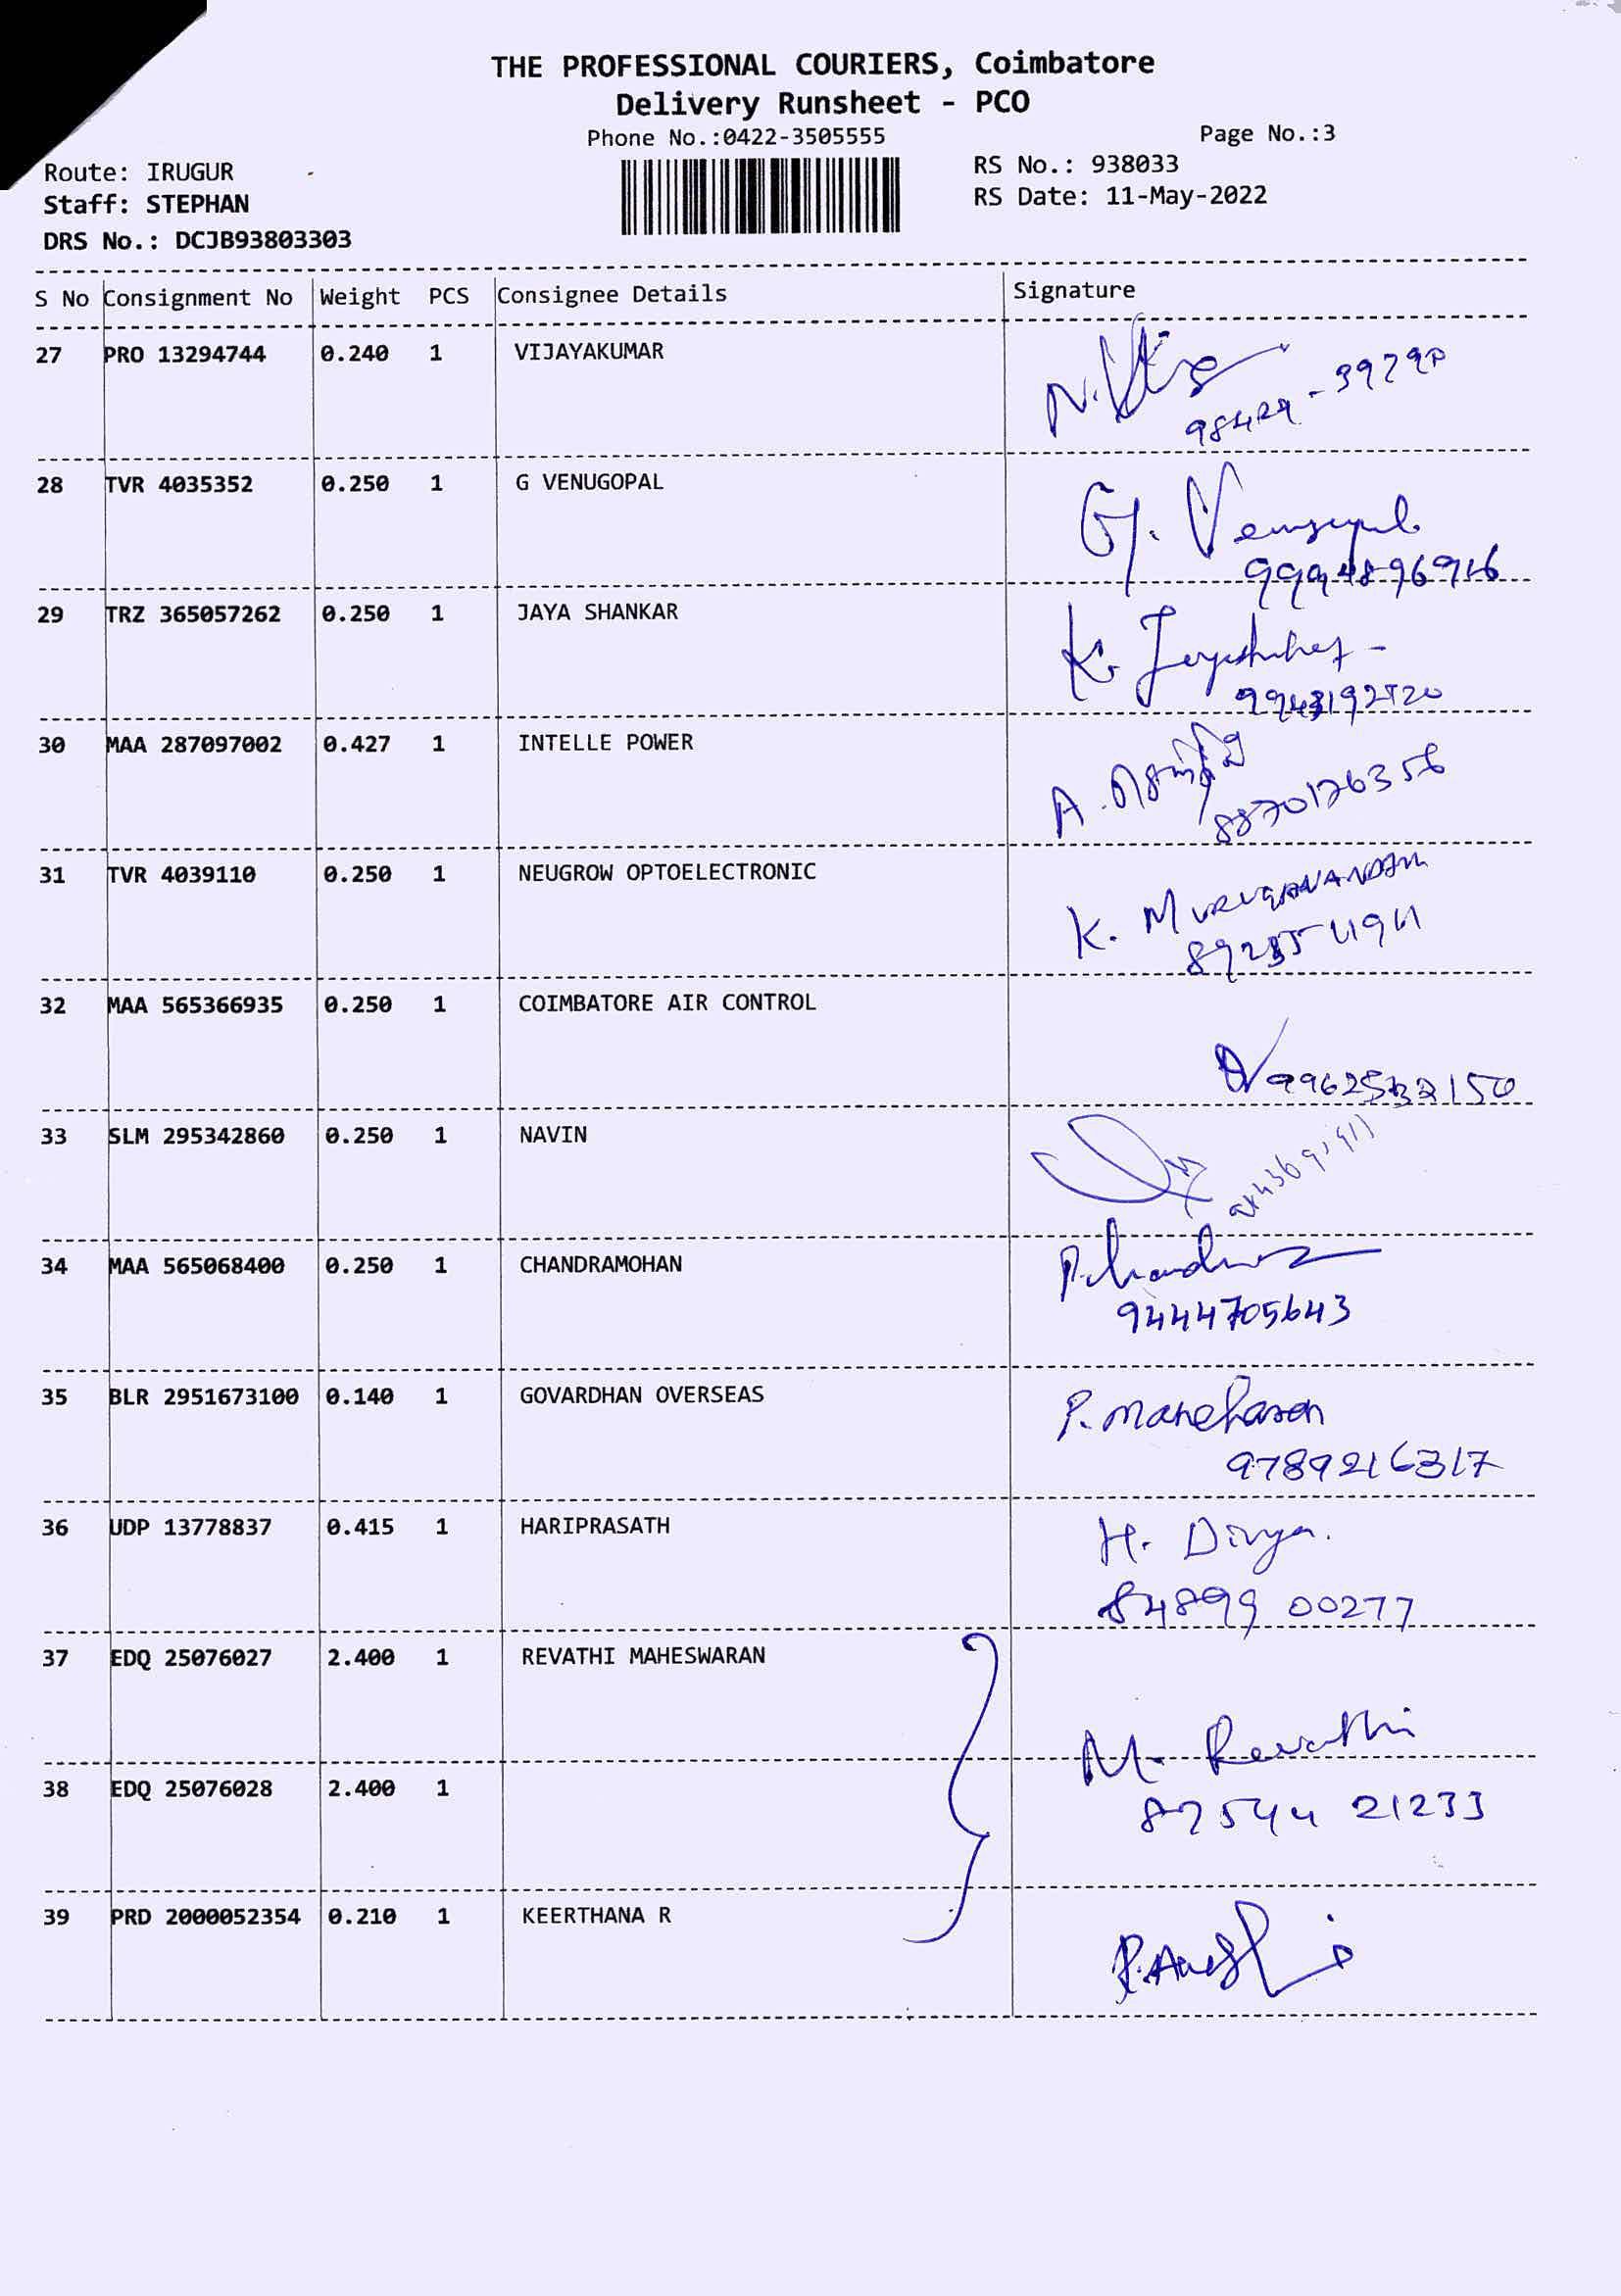 THE PROFESSIONAL COURIERS, Coimbatore
Delivery Runsheet - PCO
Phone No.:0422-3505555
Page No.:3
Route: IRUGUR
RS No.: 938033
Staff: STEPHAN
RS Date: 11-May-2022
DRS No.: DCJB93803303
S No Consignment No Weight PCS Consignee Details Signature
27 PRO 13294744 0.240 1 VIJAYAKUMAR
28 TVR 4035352 0.250 1 G VENUGOPAL
G. Venugopal
9994896916
29 TRZ 365057262 0.250 1 JAYA SHANKAR
30 MAA 287097002 0.427 1 INTELLE POWER
8870176356
31 TVR 4039110 0.250 1 NEUGROW OPTOELECTRONIC
K. MURUGANANDAM
32 MAA 565366935 0.250 1 COIMBATORE AIR CONTROL
33 SLM 295342860 0.250 1 NAVIN
34 MAA 565068400 0.250 1 CHANDRAMOHAN
9444705643
35 BLR 2951673100 0.140 1 GOVARDHAN OVERSEAS
9789216317
36 UDP 13778837 0.415 1 HARIPRASATH
H. Divya.
84899 00277
37 EDQ 25076027 2.400 1 REVATHI MAHESWARAN
M. Revathi
38 EDQ 25076028 2.400 1
87544 21233
39 PRD 2000052354 0.210 1 KEERTHANA R